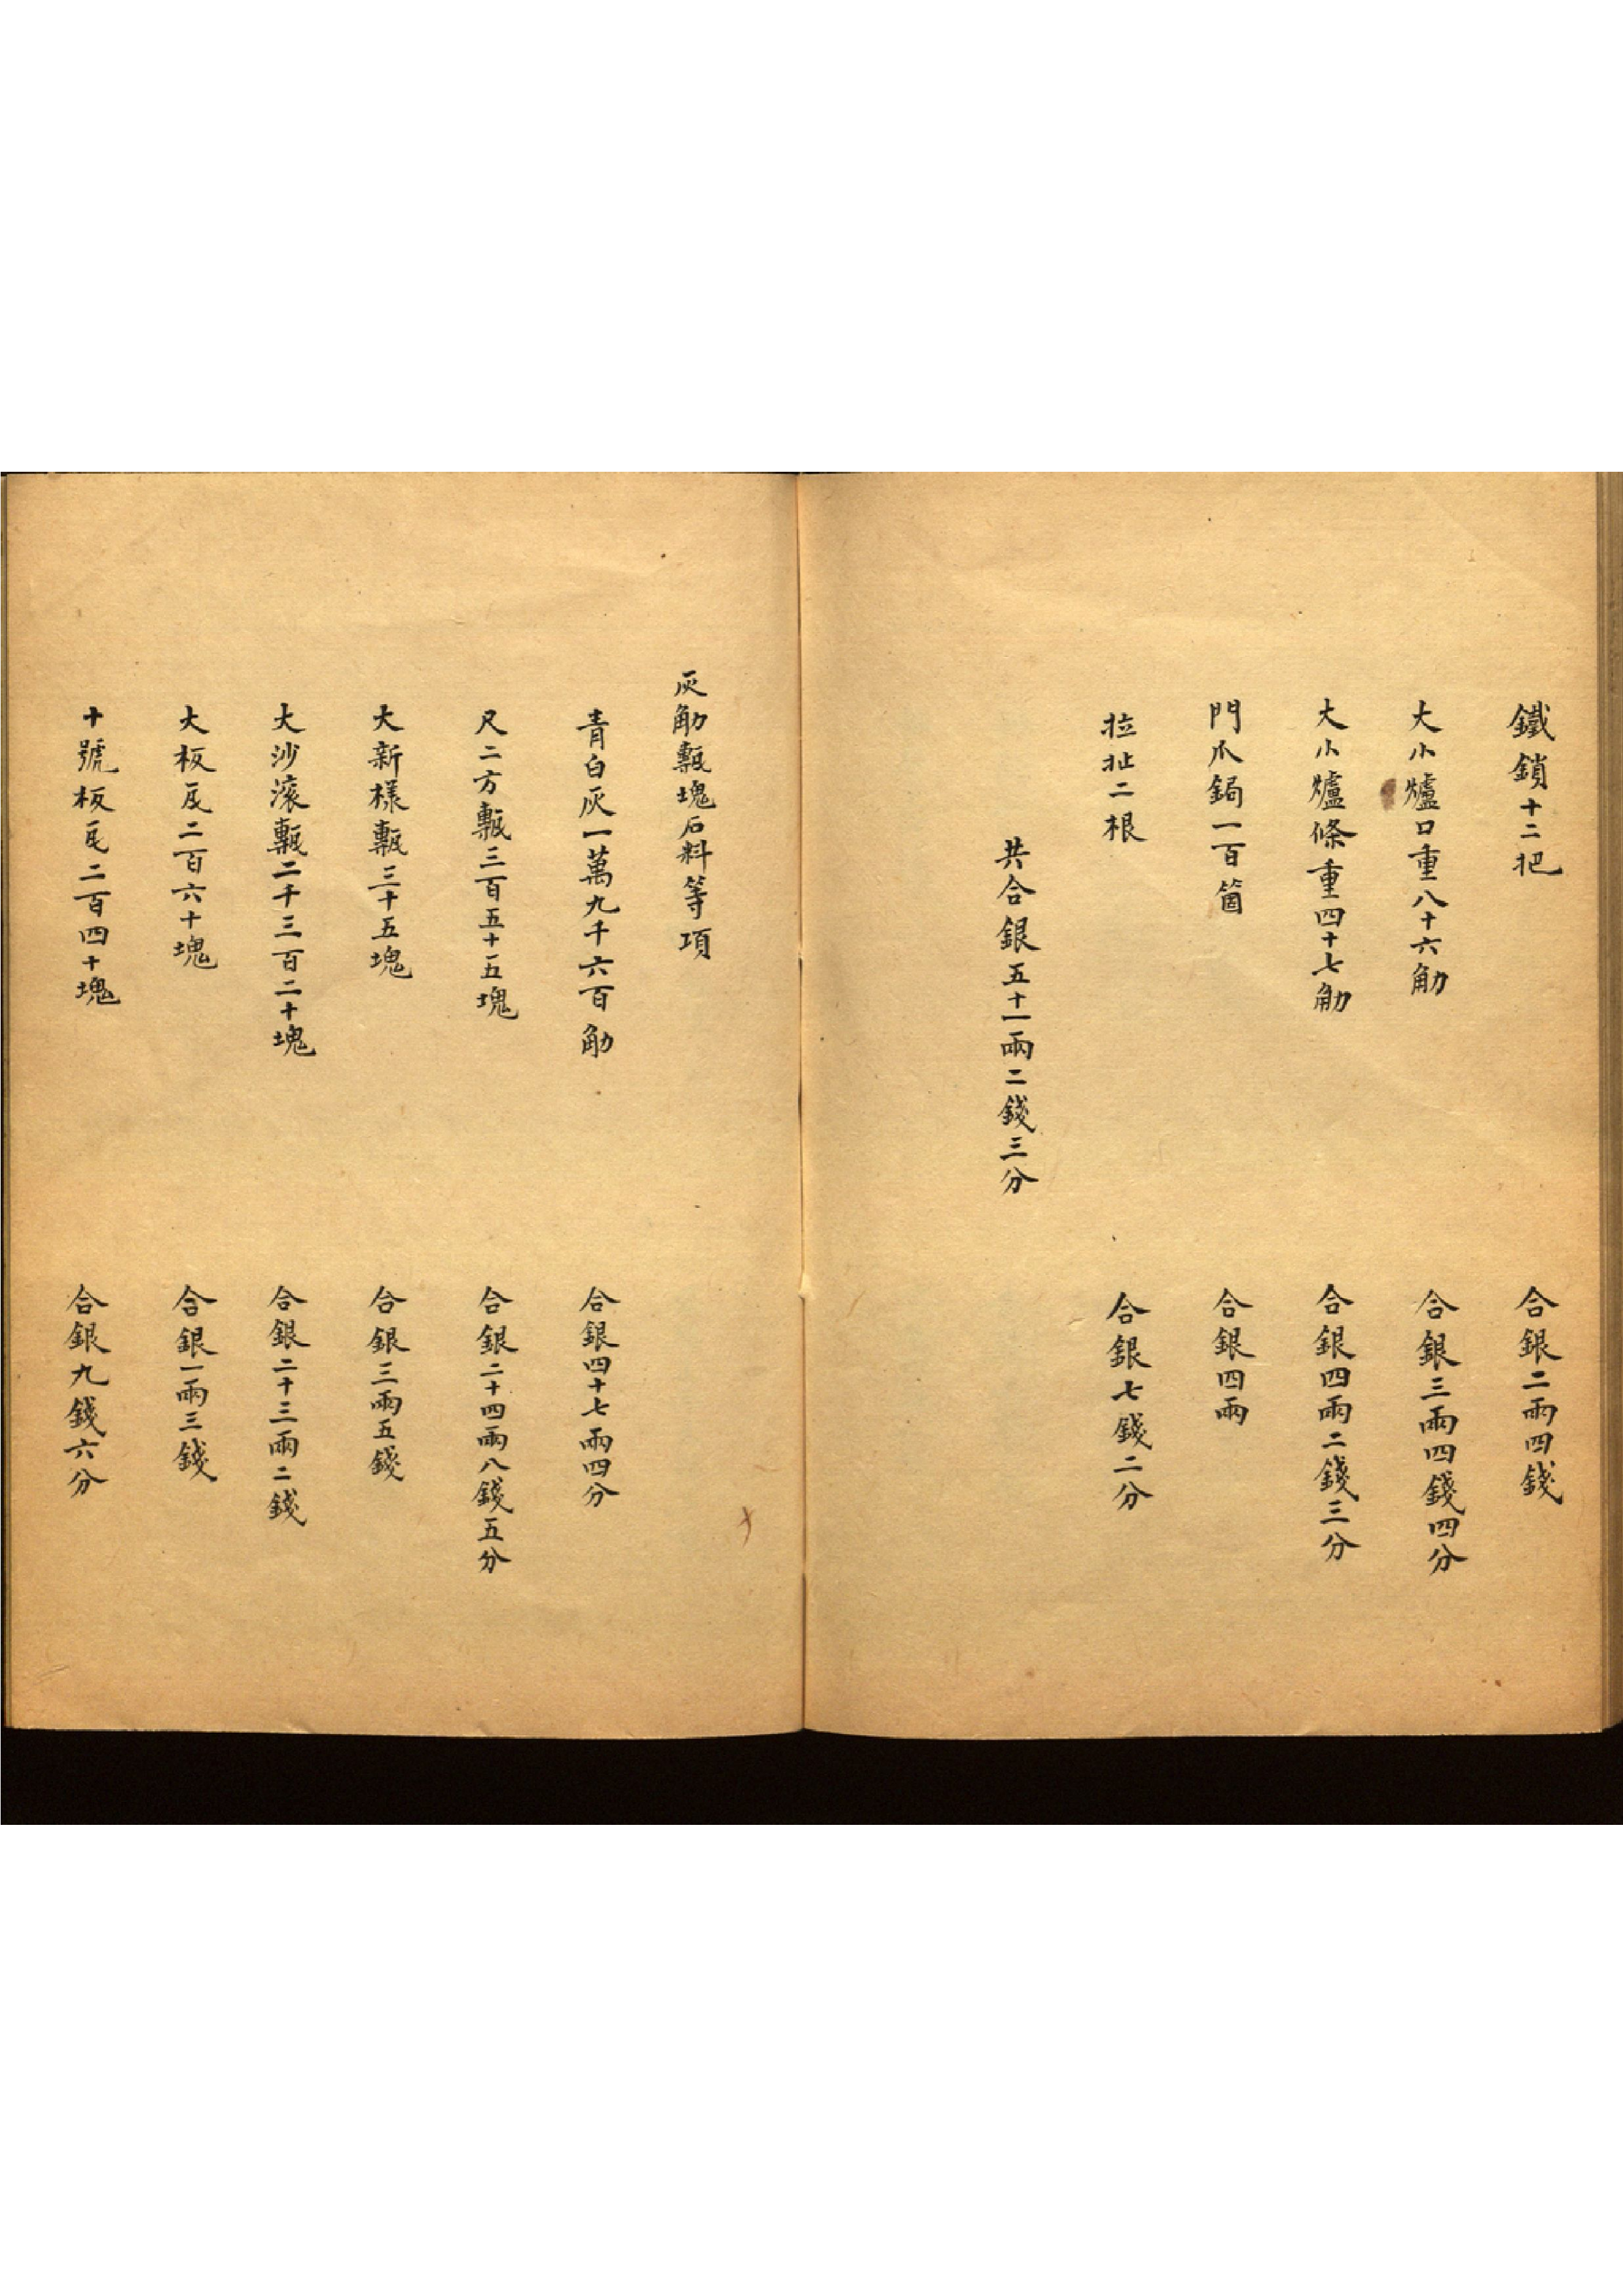 鐵鎖十二把 合銀二兩四錢
大小爐口重八十六觔 合銀三兩四錢四分
大小爐條重四十七觔 合銀四兩二錢三分
門爪鋦一百箇 合銀四兩
拉扯二根 合銀七錢二分
共合銀五十一兩二錢三分
灰觔甎塊石料等項
青白灰一萬九千六百觔 合銀四十七兩四分
尺二方甎三百五十五塊 合銀二十四兩八錢五分
大新樣甎三十五塊 合銀三兩五錢
大沙滚甎二千三百二十塊 合銀二十三兩二錢
大板瓦二百六十塊 合銀一兩三錢
十號板瓦二百四十塊 合銀九錢六分